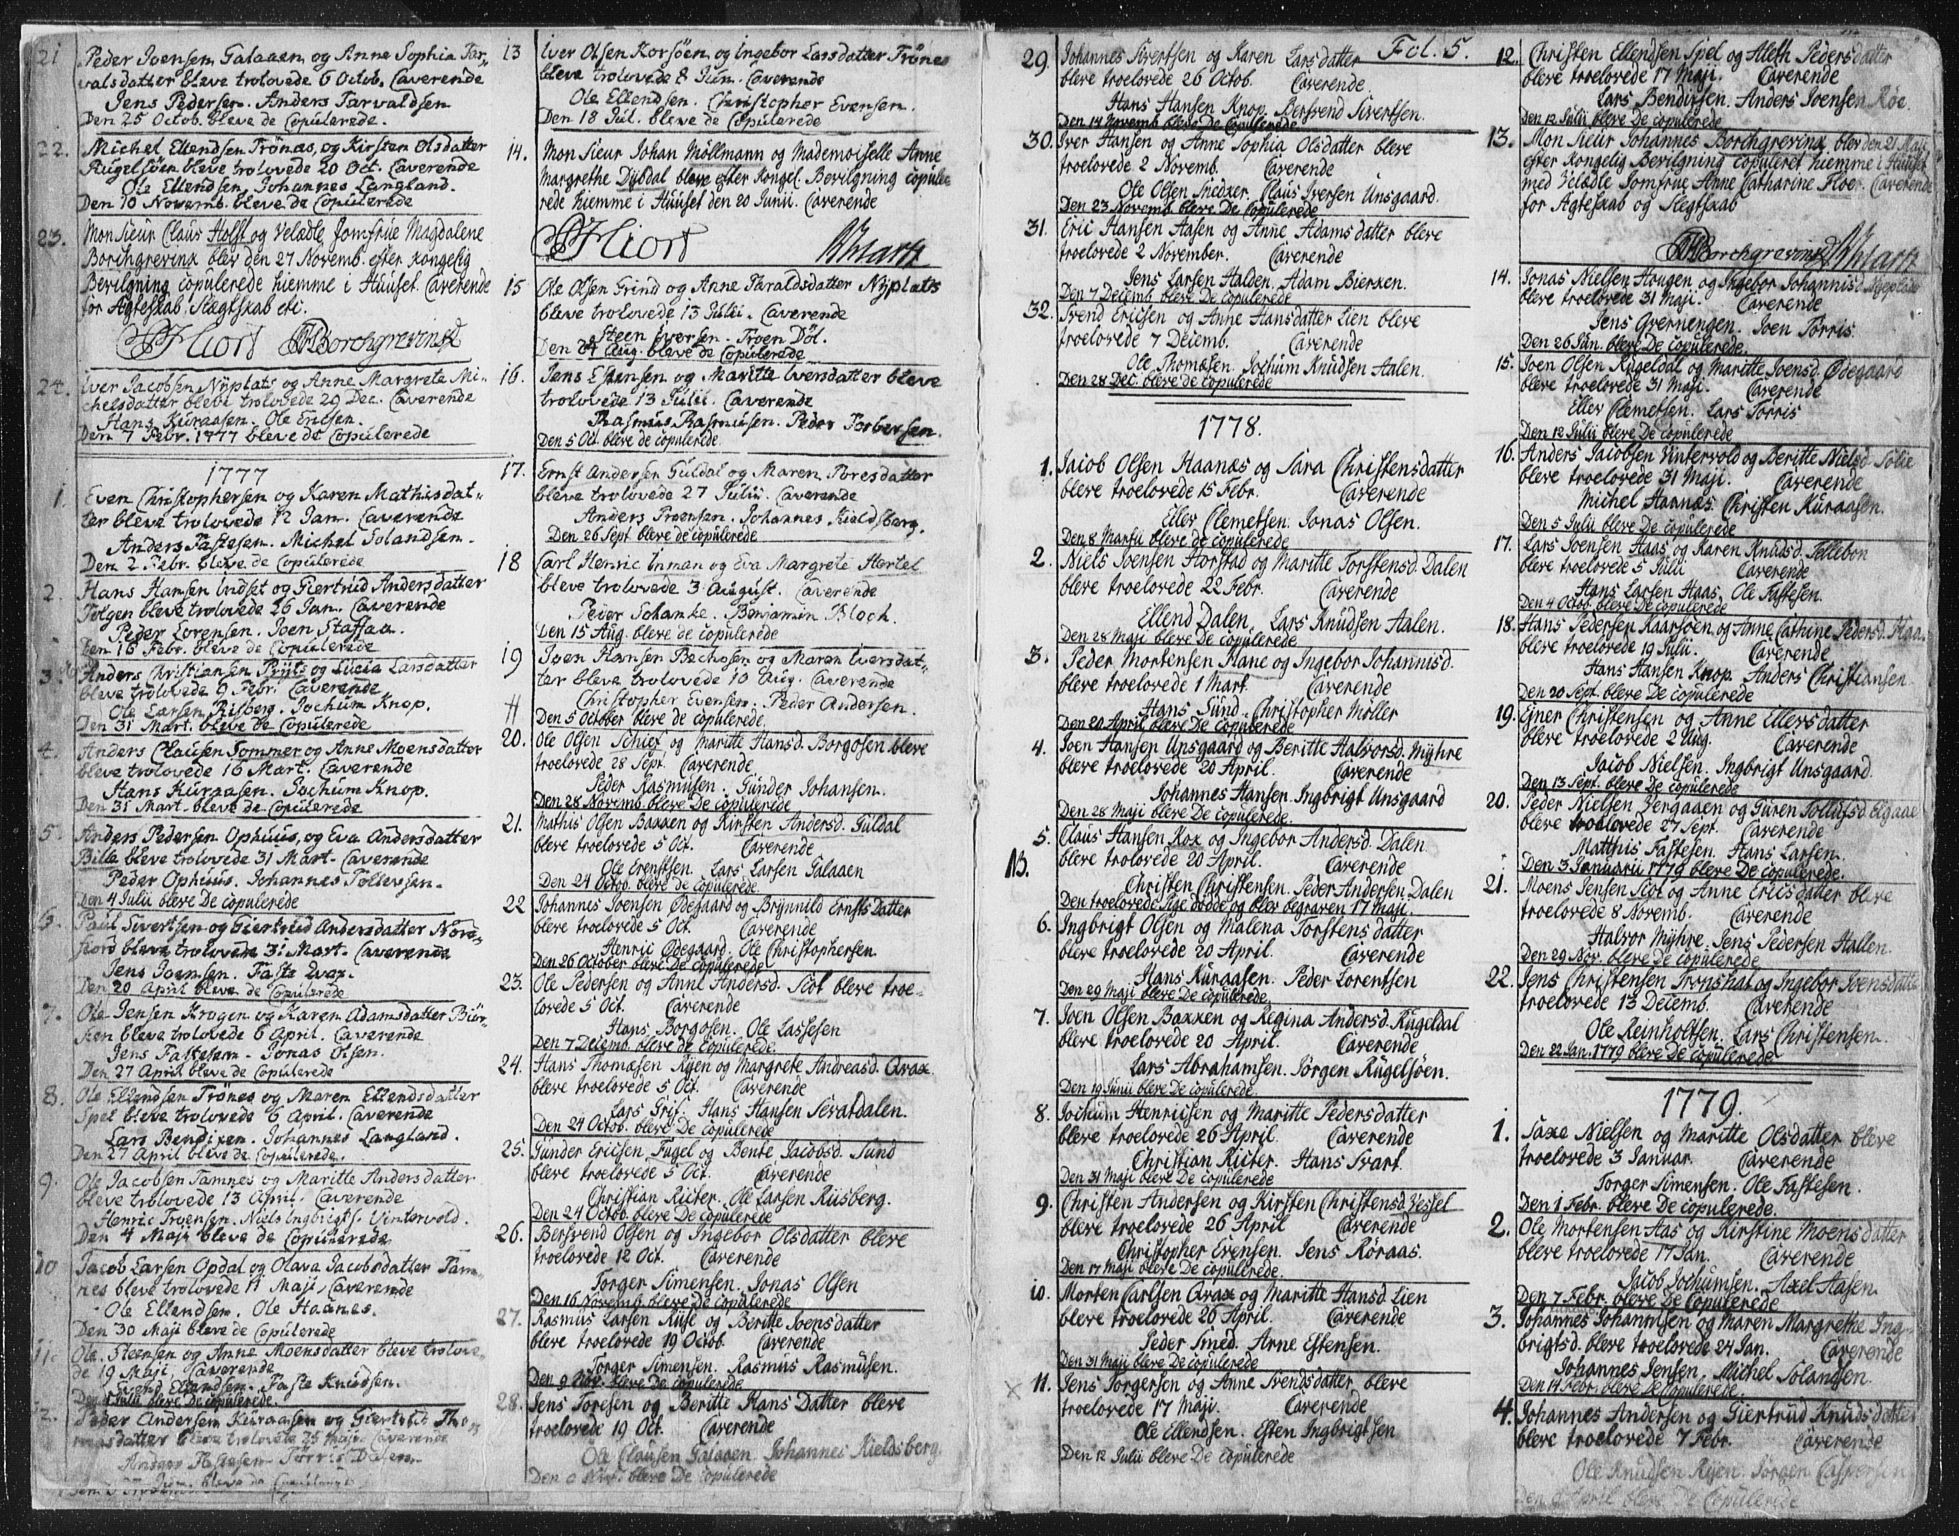 21. Peder Joensen Galaaen og Anne Sophia Tar-
valsdatter bleve trolovede 6 Octob. Caverende
Jens Pedersen. Anders Tarvaldsen
Den 25 Octob. bleve de Copulerede.
22. Michel Ellendsen Trönæs, og Kirsten Olsdatter
Rugelsöen bleve trolovede 20 Oct. Caverende
Ole Ellendsen. Johannes Langland.
Den 10 Novemb. bleve de Copulerede
23. Monsieur Claus Holst og Velædle Jomfrue Magdalene
Borchgrevinx blev den 27 Novemb. efter kongelig
Bevilgning copulerede hiemme i Huuset. Caverende
for Ægteskab. Slegtskab etc.
Hiort Borchgrevinx
24. Iver Jacobsen Nyplats og Anne Margrete Mi-
chelsdatter bleve trolovede 29 Dec. Caverende
Hans Kuraasen. Ole Ericsen.
Den 7 Febr. 1777 bleve de Copulerede
1777
1. Even Christophersen og Karen Mathisdat-
ter bleve trolovede 12 Jan. Caverende
Anders Fastesen. Michel Solandsen.
Den 2 Febr. bleve de Copulerede
2. Hans Hansen Indset og Giertrud Andersdatter
Tolgen bleve trolovede 26 Jan. Caverende
Peder Lorensen. Joen Staffaa.
Den 16 Febr. bleve de Copulerede
3. Anders Christiansen Pryts og Lucia Larsdatter
bleve trolovede 9 Febr. Caverende
Ole Larsen Risberg. Jochum Knop.
Den 31 Mart. bleve de Copulerede
4. Anders Clausen Tommer og Anne Moensdatter
bleve trolovede 16 Mart. Caverende
Hans Kuraasen. Jochum Knop.
Den 31 Mart. bleve de Copulerede
5. Anders Pedersen Ophuus, og Eva Andersdatter
Bille bleve trolovede 31 Mart. Caverende
Peder Ophuus. Johannes Tollevsen.
Den 4 Julii bleve de Copulerede
6. Paul Sivertsen og Giertrud Andersdatter Nord-
fiord bleve trolovede 31 Mart. Caverende
Jens Joensen. Faste Qvax.
Den 20 April bleve de Copulerede
7. Ole Jensen Krogen og Karen Adamsdatter Biör-
ken bleve trolovede 6 April. Caverende
Jens Fastesen. Jonas Olsen.
Den 27 April bleve de Copulerede
8. Ole Ellendsen Trönes og Maren Ellendsdatter
Spel bleve trolovede 6 April. Caverende
Lars Bendixen. Johannes Langland.
Den 27 April bleve de Copulerede.
9. Ole Jacobsen Tamnes og Maritte Andersdatter
bleve trolovede 13 April. Caverende
Henric Troensen. Niels Ingbrigts. Vintervold.
Den 4 Maji bleve de Copulerede
10 Jacob Larsen Opdal og Olava Jacobsdatter Tam-
nes bleve trolovede 11 Maji, Caverende
Ole Ellendsen. Ole Haanes.
Den 30 Maji bleve de Copulerede
11. Ole Steensen og Anne Moensdatter bleve trolove-
de 19 Maji. Caverende
Svend Ellendsen. Faste Knudsen.
Den Julii bleve de Copulerede
12. Peder Andersen Kuraasen og Giertrud Tho-
masdatter bleve trolovede 25 Maji Caverende
Fastesen. Törris
bleve de Copulerede
13 Iver Olsen Korsöen og Ingebor Larsdatter Trönes
bleve trolovede 8 Jun. Caverende
Ole Ellendsen. Christopher Evensen.
Den 18 Jul. bleve de Copulerede
14. Monsieur Johan Möllmann og Mademoiselle Anne
Margrethe Dybdal bleve efter kongel. Bevilgning copule-
rede hiemme i Huuset den 20 Junii. Caverende
Hiort
15 Ole Olsen Grind og Anne Taraldsdatter Nyplats
bleve trolovede 13 Julii. Caverende
Steen Iversen. Troen Döl.
Den 24 Aug. bleve de Copulerede
16. Jens Estensen og Maritte Iversdatter bleve
trolovede 13 Julii. Caverende
Rasmus Rasmusen. Peder Torbersen.
Den 5 Oct. bleve de copulerede
17. Ernst Andersen Guldal og Maren Toresdatter
bleve trolovede 27 Julii. Caverende
Anders Troensen. Johannes Kieldsberg.
Den 26 Sept. bleve de copulerede
18 Carl Henric Inman og Eva Margrete Hertel
bleve trolovede 3 August. Caverende
Peder Schanke. Benjamin Bloch.
Den 15 Aug. bleve de copulerede
19 Joen Hansen Bechosen og Maren Iversdat-
ter bleve trolovede 10 Aug. Caverende
Christopher Evensen. Peder Andersen.
Den 5 October bleve de copulerede
20. Ole Olsen Schief og Maritte Hansd. Borgosen bleve
troelovede 28 Sept. Caverende
Peder Rasmusen. Gunder Johansen.
Den 28 Novemb. bleve de copulerede
21. Mathis Olsen Baxxen og Kirsten Andersd. Guldal
bleve troelovede 5 Oct. Caverende
Ole Erenstsen. Lars Larsen Galaaen
Den 24 Octob. bleve de copulerede
22 Johannes Joensen Ödegaard og Brynnild Ernstsdatter
bleve troelovede 5 Oct. Caverende
Henric Ödegaard. Ole Christophersen.
Den 26 October bleve De copulerede
23. Ole Pedersen og Anne Andersd. Slot bleve troe-
lovede 5 Oct. Caverende
Hans Borgosen. Ole Lassesen
Den 7 Decemb. bleve de copulerede
24. Hans Thomasen Ryen og Margrete Andreasd. Qvax
bleve troelovede 5 Oct. Caverende
Lars Grif. Hans Hansen Sevatdalen.
Den 24 Octob. bleve De copulerede
25. Gunder Ericsen Fugel og Bente Jacobsd. Sund
bleve troelovede 5 Oct. Caverende
Christian Richter. Ole Larsen Riisberg.
Den 24 Octob. bleve De copulerede
26. Bersvend Olsen og Ingebor Olsdatter bleve
troelovede 12 Oct. Caverende
Torger Simensen. Jonas Olsen
Den 16 Novemb. bleve De copulerede
27. Rasmus Larsen Ruse og Beritte Joensdatter
bleve troelovede 19 Octob. Caverende
Torger Simensen. Rasmus Rasmusen.
Den 9 Nov. bleve de copulerede
28. Jens Toresen og Beritte Hans Datter bleve
troelovede 19 Oct. Caverende
Ole Clausen Galaaen. Johannes Kieldsberg.
Den 9 Nov. bleve De copulerede
Fol. 5.
29. Johannes Sivertsen og Karen Larsdatter
bleve troelovede 26 Octob. Caverende.
Hans Hansen Knop. Bersvend Sivertsen.
Den 14 Novemb. bleve De Copulerede
30. Iver Hansen og Anne Sophia Olsdatter bleve
troelovede 2 Novemb. Caverende
Ole Olsen Snedxer. Claus Iversen Unsgaard.
Den 23 Novemb. bleve De Copulerede
31. Eric Hansen Aasen og Anne Adamsdatter bleve
troelovede 2 November. Caverende
Jens Larsen Halden. Adam Bierxen.
Den 7 Decemb. bleve De copulerede
32. Svend Ericsen og Anne Hansdatter Lien bleve
troelovede 7 Decemb. Caverende
Ole Thomasen. Jochum Knudsen Aalen.
Den 28 Dec. bleve de copulerede
1778.
1. Jacob Olsen Haanæs og Sara Christensdatter
bleve troelovede 15 Febr. Caverende
Eller Clemetsen. Jonas Olsen.
Den 8 Martii bleve de copulerede
2. Niels Joensen Horstad og Maritte Torstensd. Dalen
bleve troelovede 22 Febr. Caverende
Ellend Dalen. Lars Knudsen Aalen.
Den 28 Maji bleve De copulerede
3. Peder Mortensen Kane og Ingebor Johannisd.
bleve troelovede 1 Mart. Caverende
Hans Sund. Christopher Møller
Den 20 April bleve De Copulerede
4. Joen Hansen Unsgaard og Beritte Halvorsd. Myhre
bleve troelovede 20 April. Caverende
Johannes Hansen. Ingbrigt Unsgaard
Den 28 Maji bleve De copulerede.
5. Claus Hansen Kox og Ingebor Andersd. Dalen
bleve trolovede 20 April. Caverende
Christen Christensen. Peder Andersen Dalen
Den troelovede Pige dödde og blev begraven 17 Maji.
6. Ingbrigt Olsen og Malena Torstensdatter
bleve troelovede 20 April. Caverende
Hans Kuraasen. Peder Lorentsen
Den 29 Maji bleve De copulerede
7. Joen Olsen Baxxen og Regina Andersd. Rugeldal
bleve troelovede 20 April. Caverende
Lars Abrahamsen. Jörgen Rugelsöen.
Den 19 Junii bleve De copulerede.
8. Jochum Henricsen og Maritte Pedersdatter
bleve troelovede 26 April. Caverende
Christian Richter. Hans Svart.
Den 31 Maji bleve De copulerede
9. Christen Andersen og Kirsten Christensd. Vessel
bleve troelovede 26 April Caverende
Christopher Evensen. Jens Röraas.
Den 17 Maji bleve De copulerede
10. Morten Carlsen Qvax og Maritte Hansd. Lien
bleve troelovede 26 April. Caverende
Peder Smed. Arne Estensen.
Den 31 Maji bleve De copulerede
11. Jens Torgersen og Anne Svendsdatter bleve
troelovede 17 Maji. Caverende
Ole Ellendsen. Esten Ingbrigtsen
Den 12 Julii bleve De copulerede
12. Christen Ellendsen Spel og Aleth Pedersdatter
bleve troelovede 17 Maji. Caverende
Lars Bendixsen. Anders Joensen Röe.
Den 12 Julii bleve De copulerede
13. Monsieur Johannes Borchgrevinx blev den 21 Maji
efter kongelig Bevilgning copuleret hiemme i Huuset
med Velædle Jomfrue Anne Catharine Floer. Caverende
for Ægteskab og Slegtskab
Borchgrevinx
14. Jonas Nielsen Hougen og Ingebor Johannisd. Nyeplads
bleve troelovede 31 Maji. Caverende
Jens Gvernengen. Joen Törris.
Den 26 Jun. bleve De copulerede.
15. Joen Olsen Rugeldal og Maritte Joensd. Ödegaard
bleve troelovede 31 Maji. Caverende
Eller Clemetsen. Lars Törris
Den 12 Julii bleve De Copulerede
16. Anders Jacobsen Vintervold og Beritte Nielsd. Solie
bleve troelovede 31 Maji. Caverende
Michel Haanæs. Christen Kuraasen.
Den 5 Julii bleve De copulerede
17. Lars Joensen Haas og Karen Knudsd. Tellebon
bleve troelovede 5 Julii Caverende
Hans Larsen Haas. Ole Fastesen.
Den 4 Octob. bleve De Copulerede
18. Hans Pedersen Kaarsöen og Anne Cathrine Pedersd. Haa-
bleve troelovede 19 Julii. Caverende
Hans Hansen Knop. Anders Christiansen
Den 20 Sept. bleve De copulerede
19. Ejner Christensen og Anne Ellersdatter
bleve troelovede 2 Aug. Caverende
Jacob Nielsen. Ingbrigt Unsgaard.
Den 13 Sept. bleve De copulerede
20. Peder Nielsen Vergaaen og Guren Tollufsd. Elgaae
bleve troelovede 27 Sept. Caverende
Matthis Fastesen. Hans Larsen.
Den 3 Januarii 1779 bleve De copulerede.
21. Moens Jensen Slot og Anne Ericsdatter bleve
troelovede 8 Novemb. Caverende
Halvor Myhre. Jens Pedersen Hallen.
Den 29 Nov. bleve De copulerede
22. Jens Christensen Tronshat og Ingebor Joensdatte
troelovede 13 Decemb. Caverende
Ole Reinholtsen. Lars Christensen.
Den 22 Jan. 1779 bleve De copulerede
1779.
1. Saxe Nielsen og Maritte Olsdatter bleve
troelovede 3 Januar. Caverende
Torger Simensen. Ole Fastesen.
Den 1 Febr. bleve De copulerede.
2. Ole Mortensen Aas og Kirstine Moensdatter
bleve troelovede 17 Jan. Caverende
Jacob Jochumsen. Axel Aasen.
Den 7 Febr. bleve De Copulerede
3. Johannes Johannisen og Maren Margrethe Ing-
brigtsd. bleve troelovede 24 Jan. Caverende
Johannes Jensen. Michel Solandsen.
Den 14 Febr. bleve De Copulerede.
4. Johannes Andersen og Giertrud Knudsdatter
bleve troelovede 7 Febr. Caverende
Ole Knudsen Ryen. Jörgen Caspersen
April bleve De Copulerede